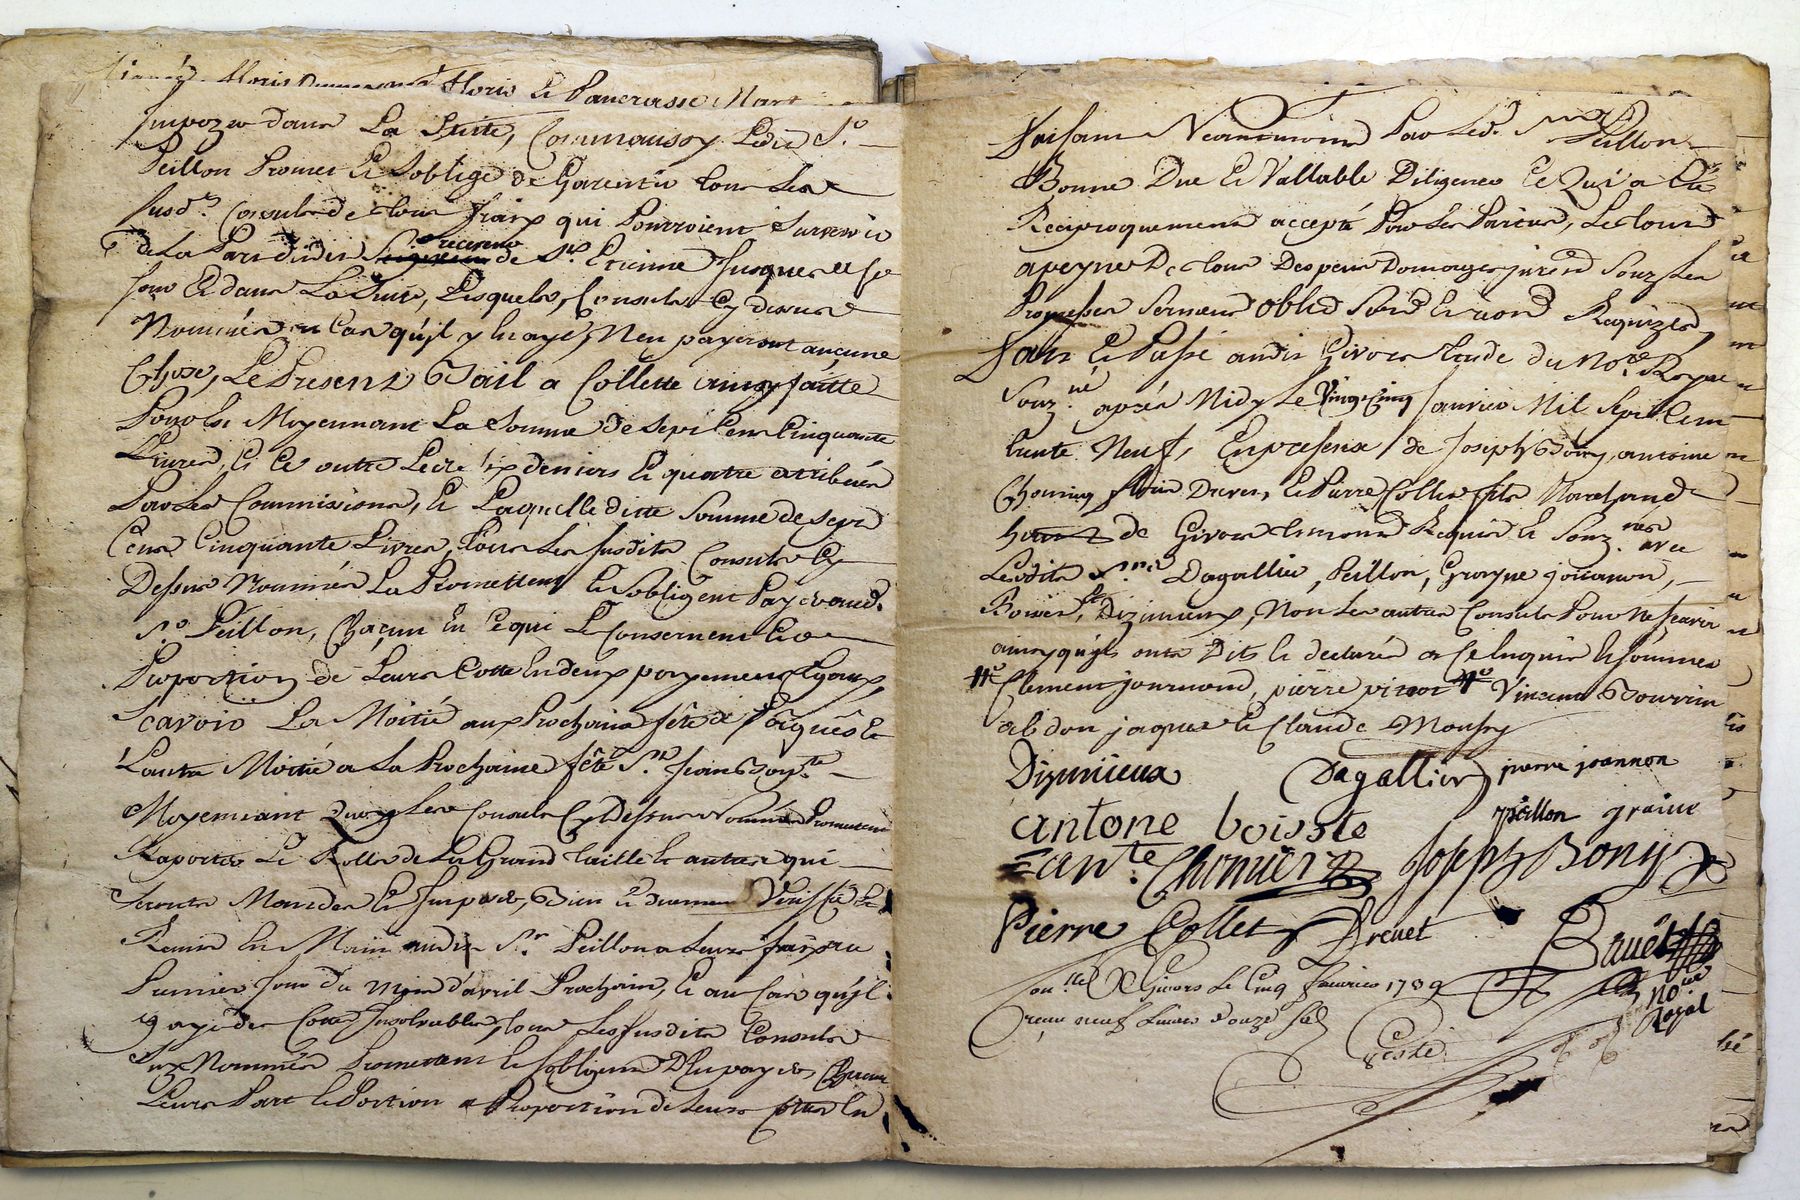 floris Et Pancrasse Mart
Impozer dans La Suitte, Comm'aussy Ledit Sr.
Peillon Promet Et Soblige de Garentir tous Les
susd.ts Consuls de tous fraix qui Pourroient Survenir
de La Part dudit Sr. receveur de St. Etienne Jusques a ce
Jour Et dans La Suite, Lesquels, Consuls Cy dessus
Nommés en Cas qu'jl y En aye, N'en payeront aucune
Chose, Le Present Bail a Collette ainsy faitte
Pour Et Moyennant La Somme de Sept Cens Cinquante
Livres, Et Ce outre Les six deniers Et quatre attribués
Par Les Commissions, Et Laquelle ditte Somme de Sept
Cens Cinquante Livres, tous Les Susdits Consuls Cy
Dessus Nommés La Promettent Et Sobligent Payer aud.
Sr. Peillon, Chacun En Ce qui Le Consernent Et a
Proportion de Leurs Cotte En deux payements Egaux,
Scavoir La Moitié aux Prochaine fête de Pasques Et
Lautre Moitié a La Prochaine fête St. Jean Bap.te
Moyennant quoy Les Consuls Cy Dessus Nommés Promettent
Raporter Le Rolle de La Grand taille Et autres qui
Seront Mandés Et Jmposés, Bien Et duement Veriffié Et
Remis En Main audit Sr. Peillon a Leurs fraix au
Premier Jour du Mois d'avril Prochain, Et au Cas qu'jl
y aye des Cottes Insolvables, tous Les Susdits Consuls
Sus Nommés Promettent Et Sobligent D'En payer Chacun
Leurs Part Et Portion a Proportion de Leurs Cottes En
faisant Neantmoins Par Led. Sr. Peillon
Bonne Due Et Vallable Diligence Ce Qui a Eté
Reciproquement accepté Par Les Parties, Le tout
a peyne De tous Despens Domages jnterets Souz Les
Promesses Serment Oblig. Soud. Et renon. Requizes,
fait Et Passé audit Givors Etude du No.re Royal
Souz.né après Midy Le Vingt Cinq Janvier Mil Sept Cens
trente Neuf, En presence de Joseph Bony, antoine
Chomier, Drevet, Et Pierre Collet fils Marchand
de Givors temoins Requis Et Souz.nés avec
Lesdits Sr. Dagallier, Peillon, Grayne joannon,
Boiset, Et Dizimieux, Non Les autres Consuls Pour Ne Scavoir
ainsy qu'jls onts Dits Et declarés de Ce Enquis Et Sommes
Clement journoud, pierre pitiot Vincent Bourrin
abdon jaques Et Claude Monsey
Dizimieux Dagallier pierre joannon
antone boisste peillon graine
ante. Chomier Joseph Bony
Pierre Collet Drevet Bruët
Con.llé A Givors Le Cinq feuvrier 1739
Reçu neuf Livres douze Sols
No.re
Royal